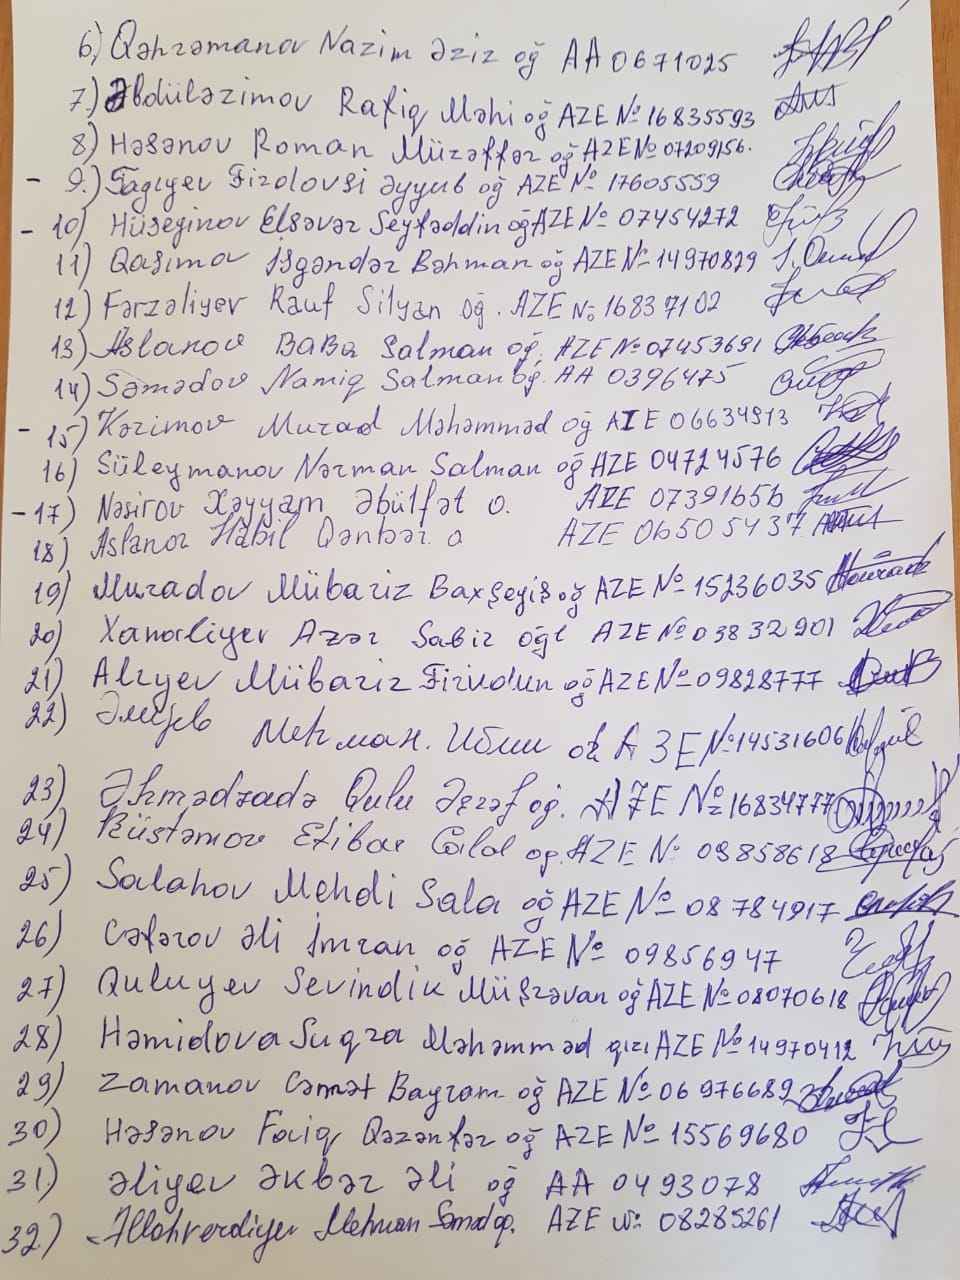 6) Qəhrəmanov Nazim Əziz oğ AA 0671025
7.) Əbdüləzimov Rafiq Məhi oğ AZE № 16835593
8) Həsənov Roman Müzəffər oğ AZE № 07209156.
- 9.) Tagıyev Firdovsi Əyyub oğ AZE № 17605559
- 10) Hüseyinov Elsəvər Seyfəddin oğ AZE № 07454272
11) Qasımov İsgəndər Bəhman oğ AZE № 14970829
12) Fərzəliyev Rauf Silyan oğ. AZE № 16837102
13) Aslanov Baba Salman oğ. AZE № 07453691
14) Səmədov Namiq Salman oğ. AA 0396475
- 15) Kərimov Murad Məhəmməd oğ AZE 06634913
16) Süleymanov Nərman Salman oğ AZE 04724576
- 17) Nəsirov Xəyyam Əbülfət o. AZE 07391656
18) Aslanov Habil Qənbər o AZE 06505437
19) Muradov Mübariz Baxşeyiş oğ AZE № 15236035
20) Xanəliyev Azər Sabir oğl AZE № 03832901
21) Alıyev Mübariz Firudun oğ AZE № 09828777
22) Мехман. № 14531606
23) Əhmədzadə Qulu Əşrəf oğ. AZE № 16834777
24) Rüstəmov Etibar oğ. AZE № 09858618
25) Salahov Mehdi Sala oğ AZE № 08784917
26) Cəfərov Əli İmran oğ AZE № 09856947
27) Quluyev Sevindik Müşrəvan oğ AZE № 08070618
28) Həmidova Suqra Məhəmməd qızı AZE № 14970412
29) Zamanov Cənnət Bayram oğ AZE № 06976689
30) Həsənov Faiq Qəzənfər oğ AZE № 15569680
31) Əliyev Əkbər Əli oğ AA 0493078
32) Allahverdiyev Mehman Səməd oğ. AZE № 08285261